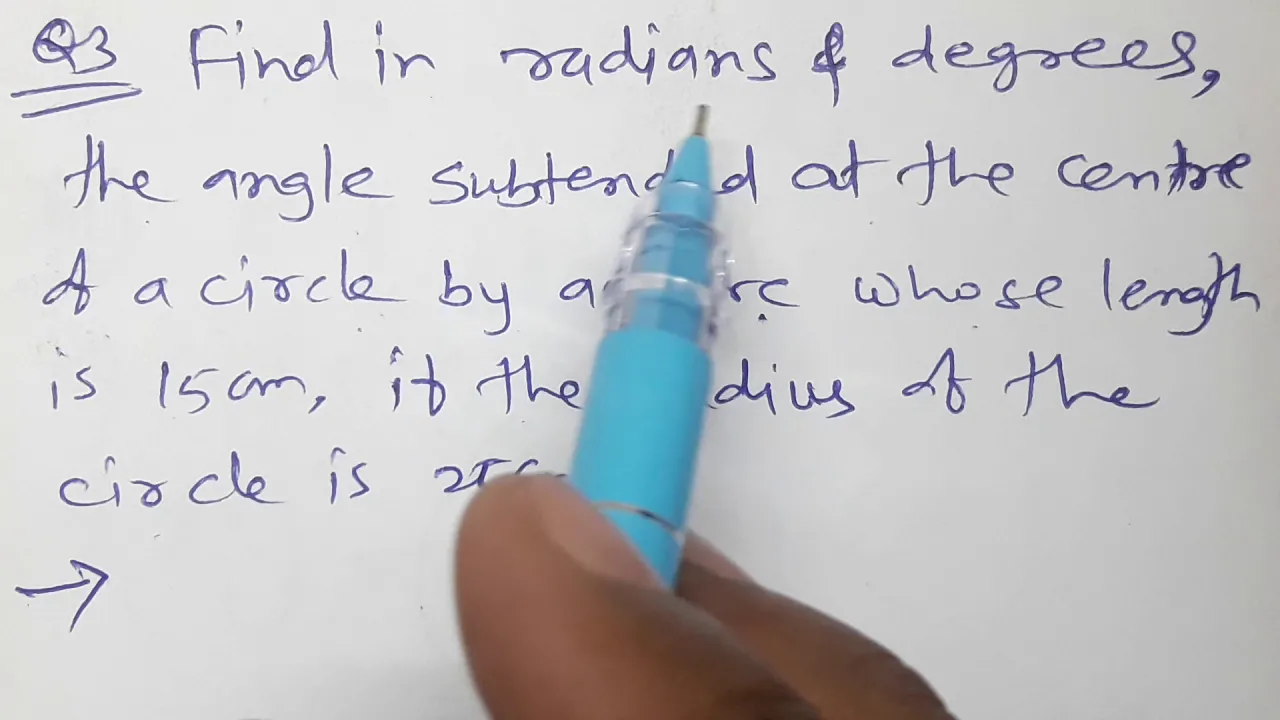 Q3 Find in radians & degrees,
the angle subtended at the centre
of a circle by whose length
is 15cm, if the of the
circle is